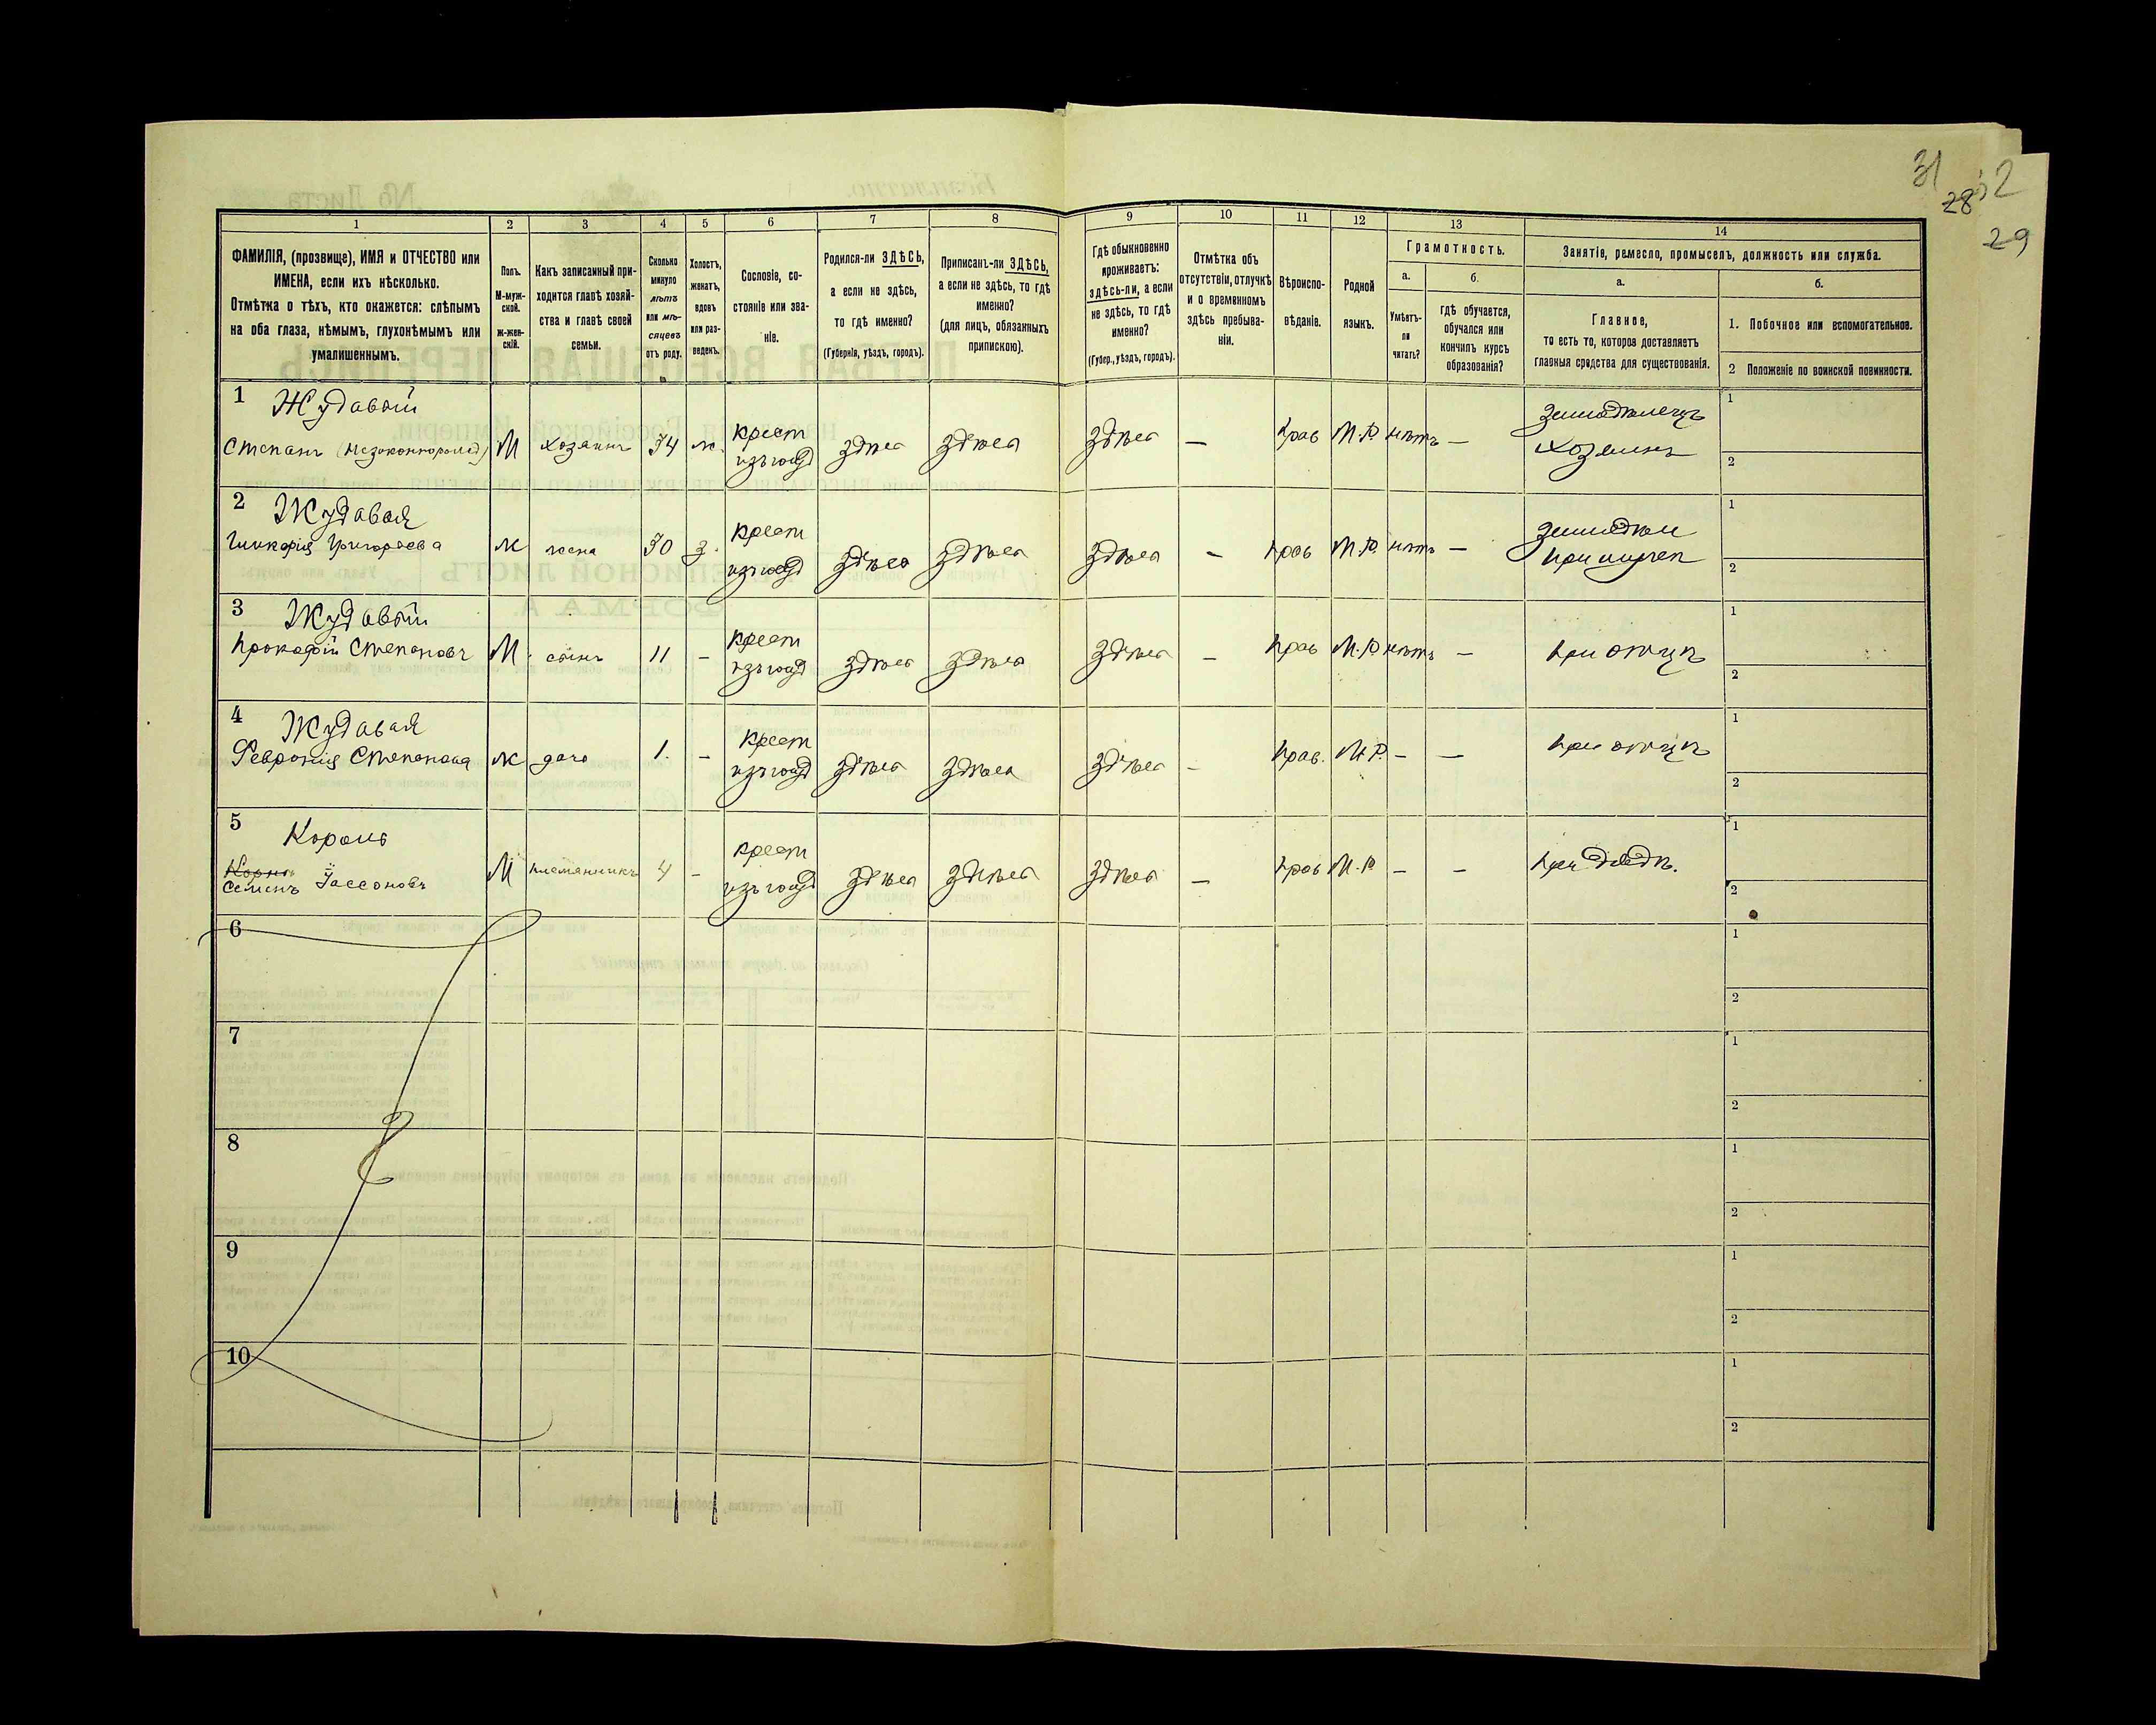 31
28
32
29
1 2 3 4 5 6 7 8 9 10 11 12 13 14
ФАМИЛІЯ, (прозвище), ИМЯ и ОТЧЕСТВО или
ИМЕНА, если ихъ нѣсколько.
Отмѣтка о тѣхъ, кто окажется: слѣпымъ
на оба глаза, нѣмымъ, глухонѣмымъ или
умалишеннымъ.
Полъ.
М-муж-
ской.
ж-жен-
скій.
Какъ записанный при-
ходится главѣ хозяй-
ства и главѣ своей
семьи.
Сколько
минуло
лѣтъ
или мѣ-
сяцевъ
отъ роду.
Холостъ,
женатъ,
вдовъ
или раз-
веденъ.
Сословіе, со-
стояніе или зва-
ніе.
Родился-ли ЗДѢСЬ,
а если не здѣсь,
то гдѣ именно?
(Губернія, уѣздъ, городъ).
Приписанъ-ли ЗДѢСЬ,
а если не здѣсь, то гдѣ
именно?
(для лицъ, обязанныхъ
припискою).
Гдѣ обыкновенно
проживаетъ:
здѣсь-ли, а если
не здѣсь, то гдѣ
именно?
(Губер., уѣздъ, городъ).
Отмѣтка объ
отсутствіи, отлучкѣ
и о временномъ
здѣсь пребыва-
ніи.
Вѣроиспо-
вѣданіе.
Родной
языкъ.
Грамотность.
а.
Умѣетъ-
ли
читать?
б.
Гдѣ обучается,
обучался или
кончилъ курсъ
образованія?
Занятіе, ремесло, промыселъ, должность или служба.
а.
Главное,
то есть то, которое доставляетъ
главныя средства для существованія.
б.
1. Побочное или вспомогательное.
2 Положеніе по воинской повинности.
1 Жудавый
Степанъ (Незаконнорожд) М хозяинъ 34 ж. крест здѣсь здѣсь здѣсь — прав М.Р нѣтъ — хозяинъ
1
2
2 Жудавая
Григорьева ж жена 30 з. крест здѣсь здѣсь здѣсь — прав М.Р. нѣтъ —
1
2
3 Жудавый
Прокофій Степановъ М. сынъ 11 — крест здѣсь здѣсь здѣсь — прав М.Р. нѣтъ — при отцѣ
1
2
4 Жудавая
Февронія Степанова ж дочь 1. — крест здѣсь здѣсь здѣсь — прав. М.Р. — — при отцѣ
1
2
5 Король
Семенъ М племянникъ 4 — крест здѣсь здѣсь здѣсь — прав М.Р — — при дядѣ.
1
2
6
1
2
7
1
2
8
1
2
9
1
2
10
1
2